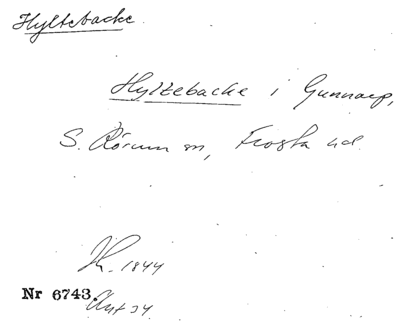 Hyltebacke
Hyltebacke i Gunnarp,
S. Rörum sn, Frosta hd.
1844
Nr 6743.